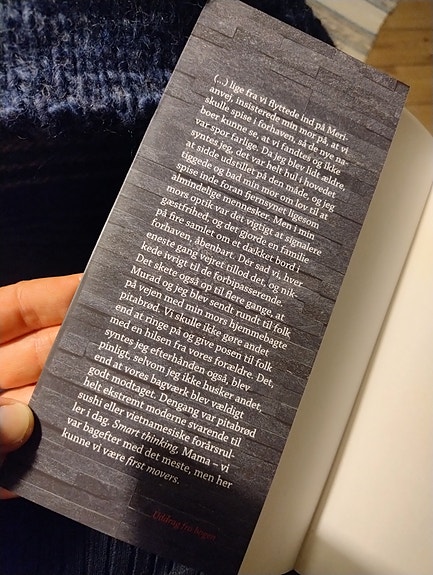 (...) lige fra vi flyttede ind på Meri-
anvej, insisterede min mor på, at vi
skulle spise i forhaven, så de nye na-
boer kunne se, at vi fandtes og ikke
var spor farlige. Da jeg blev lidt ældre,
syntes jeg, det var helt hul i hovedet
at sidde udstillet på den måde, og jeg
tiggede og bad min mor om lov til at
spise inde foran fjernsynet ligesom
almindelige mennesker. Men i min
mors optik var det vigtigt at signalere
gæstfrihed, og det gjorde en familie
på fire samlet om et dækket bord i
forhaven, åbenbart. Dér sad vi, hver
eneste gang vejret tillod det, og nik-
kede ivrigt til de forbipasserende.
Det skete også op til flere gange, at
Murad og jeg blev sendt rundt til folk
på vejen med min mors hjemmebagte
pitabrød. Vi skulle ikke gøre andet
end at ringe på og give posen til folk
med en hilsen fra vores forældre. Det,
syntes jeg efterhånden også, blev
pinligt, selvom jeg ikke husker andet,
end at vores bagværk blev vældigt
godt modtaget. Dengang var pitabrød
helt ekstremt moderne svarende til
sushi eller vietnamesiske forårsrul-
ler i dag. Smart thinking, Mama – vi
var bagefter med det meste, men her
kunne vi være first movers.
Uddrag fra bogen